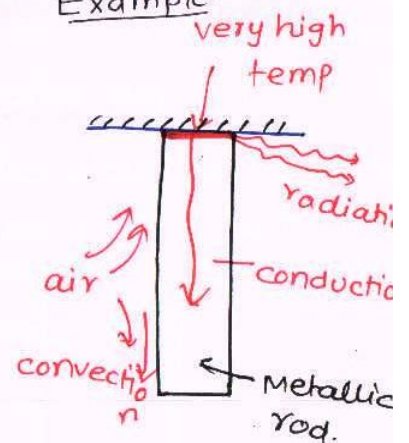 Example
very high
temp
radiati
air
conductio
convectio
n
Metallic
rod.